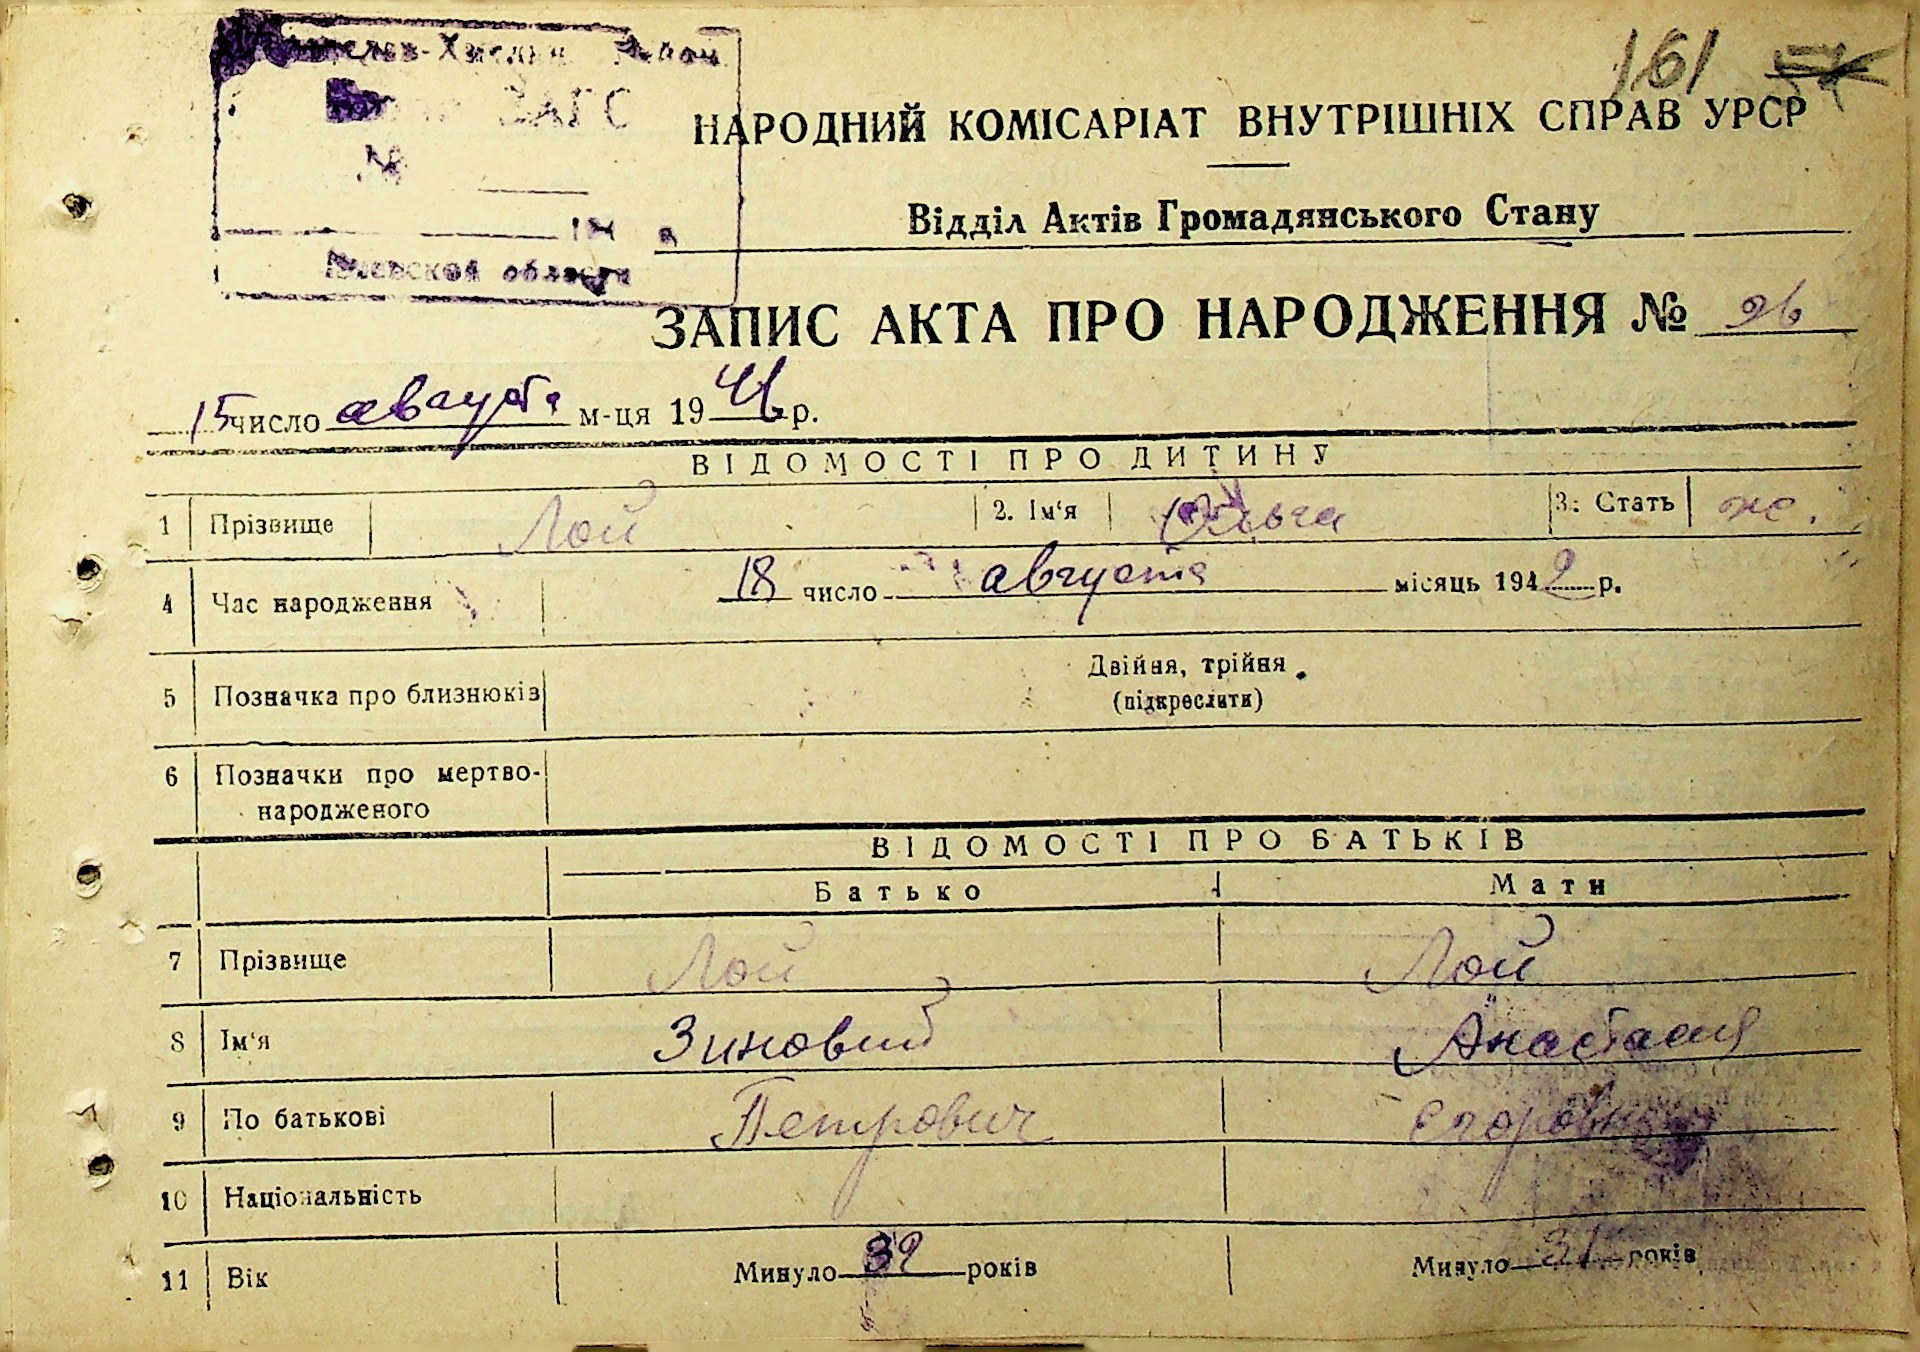 161
ЗАГС
№
194 г.
Киевской области
НАРОДНИЙ КОМІСАРІАТ ВНУТРІШНІХ СПРАВ УРСР
Відділ Актів Громадянського Стану
ЗАПИС АКТА ПРО НАРОДЖЕННЯ № 96
15 число августа м-ця 1944 р.
ВІДОМОСТІ ПРО ДИТИНУ
1 Прізвище Лой 2. Ім‘я Ольга 3. Стать ж.
4 Час народження 18 число августа місяць 1942 р.
5 Позначка про близнюків Двійня, трійня
(підкреслити)
6 Позначки про мертво-
народженого
ВІДОМОСТІ ПРО БАТЬКІВ
Батько Мати
7 Прізвище Лой Лой
8 Ім‘я Зиновий Анастасия
9 По батькові Петрович Егоровна
10 Національність
11 Вік Минуло 39 років Минуло 31 років